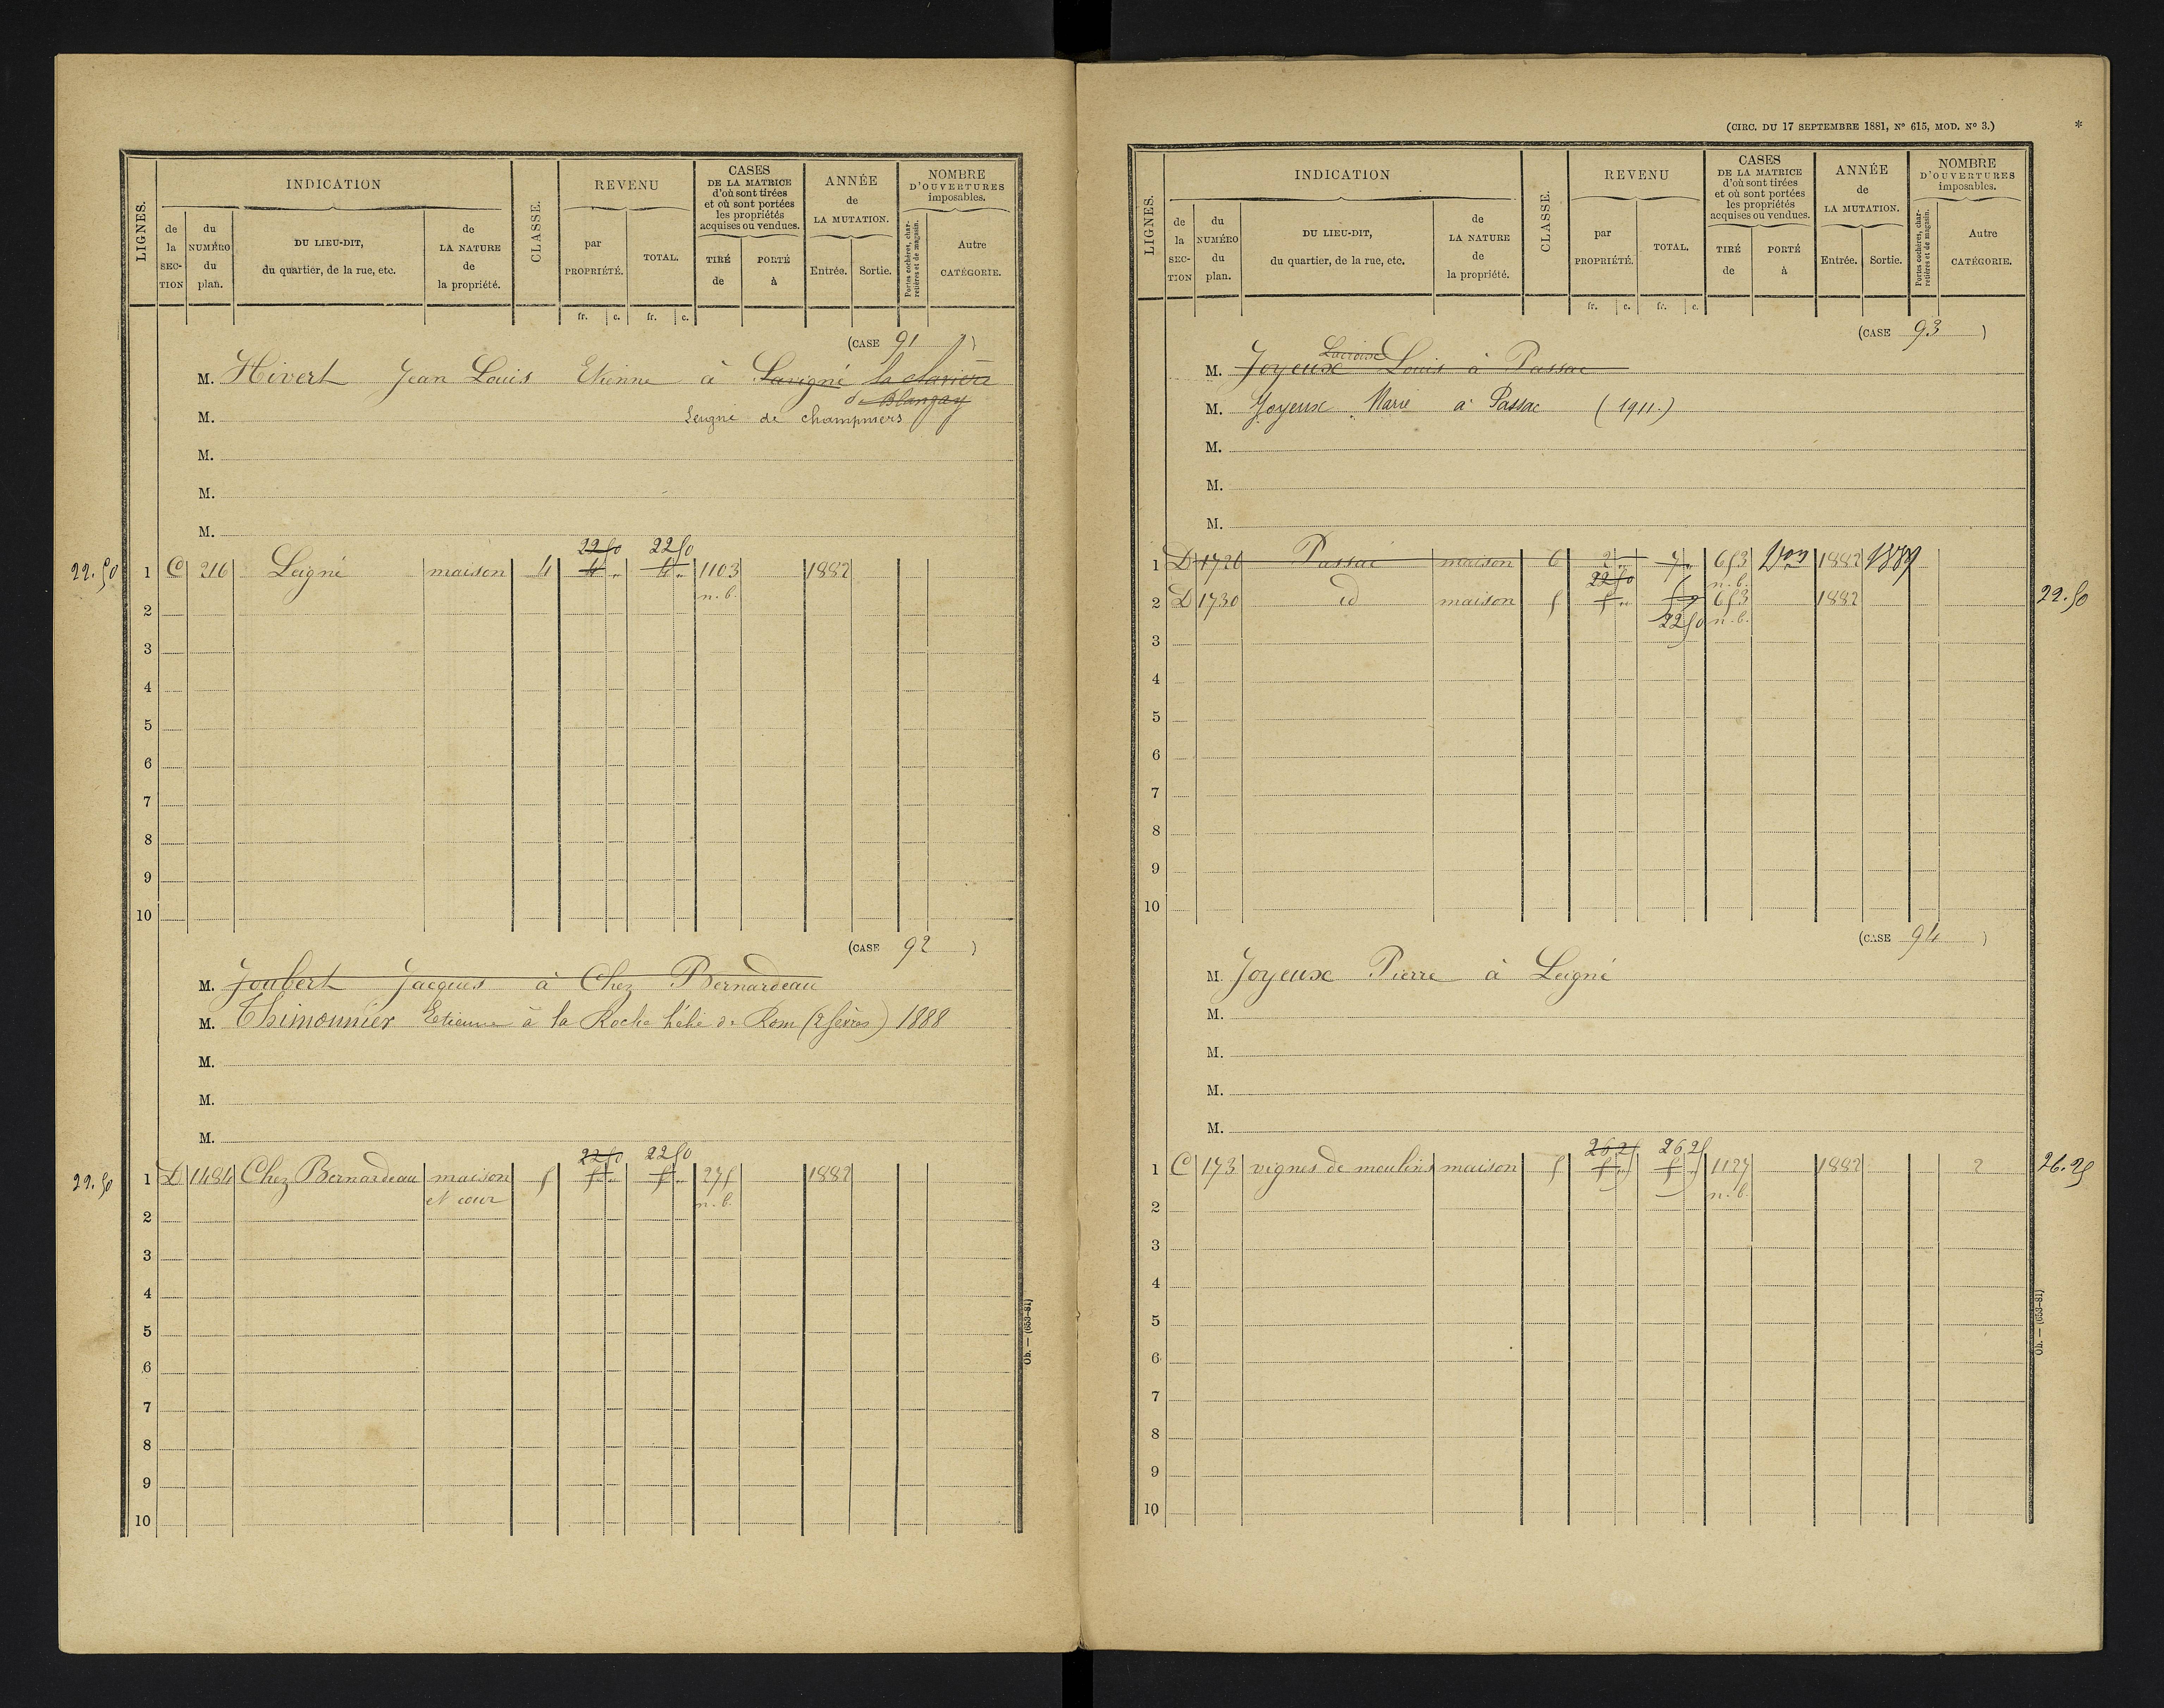 LIGNES.
INDICATION
CLASSE.
REVENU
CASES
DE LA MATRICE
d'où sont tirées
et où sont portées
les propriétés
acquises ou vendues.
ANNÉE
de
LA MUTATION.
NOMBRE
D'OUVERTURES
imposables.
de
la
SEC-
TION
du
NUMÉRO
du
plan.
DU LIEU-DIT,
du quartier, de la rue, etc.
de
LA NATURE
de
la propriété.
par
PROPRIÉTÉ.
TOTAL.
TIRÉ
de
PORTÉ
à
Entrée.
Sortie.
Portes cochères, char-
retières et de magasin.
Autre
CATÉGORIE.
fr. c. fr. c.
(CASE 91)
M. Hivert Jean Louis Etienne à Savigné la clavière
de Blanzay
M. Leigné de champniers
M.
M.
M.
22 50 22 50
22.50 1 C 216 Leigné maison 4 4 " 4 " 1103 1882
n.b.
2
3
4
5
6
7
8
9
10
(CASE 92)
M. Joubert Jacques à Chez Bernardeau
M. Thimonnier Etienne à la Roche de Rom (2 Sèvres) 1888
M.
M.
M.
22 50 22 50
22.50 1 D 1484 Chez Bernardeau maison 5 5 " 5 " 275 1882
et cour n.b.
2
3
4
5
6
7
8
9
10
Ob. — (653-81)
(CIRC. DU 17 SEPTEMBRE 1881, N° 615, MOD. N° 3.) *
LIGNES.
INDICATION
CLASSE.
REVENU
CASES
DE LA MATRICE
d'où sont tirées
et où sont portées
les propriétés
acquises ou vendues.
ANNÉE
de
LA MUTATION.
NOMBRE
D'OUVERTURES
imposables.
de
la
SEC-
TION
du
NUMÉRO
du
plan.
DU LIEU-DIT,
du quartier, de la rue, etc.
de
LA NATURE
de
la propriété.
par
PROPRIÉTÉ.
TOTAL.
TIRÉ
de
PORTÉ
à
Entrée.
Sortie.
Portes cochères, char-
retières et de magasin.
Autre
CATÉGORIE.
fr. c. fr. c.
(CASE 93)
M. Joyeux Louis à Passac
M. Joyeux Marie à Passac (1911.)
M.
M.
M.
1 D 1726 Passac maison 6 2 " 7 " 653 1882 1889
22 50 n.b.
2 D 1730 id maison 5 5 " 653 1882 22.50
22 50 n.b.
3
4
5
6
7
8
9
10
(CASE 94)
M. Joyeux Pierre à Leigné
M.
M.
M.
M.
26 25 26 25
1 C 173 vignes de moulins maison 5 5 " 5 " 1127 1882 2 26.25
n.b.
2
3
4
5
6
7
8
9
10
Ob. — (653-81)